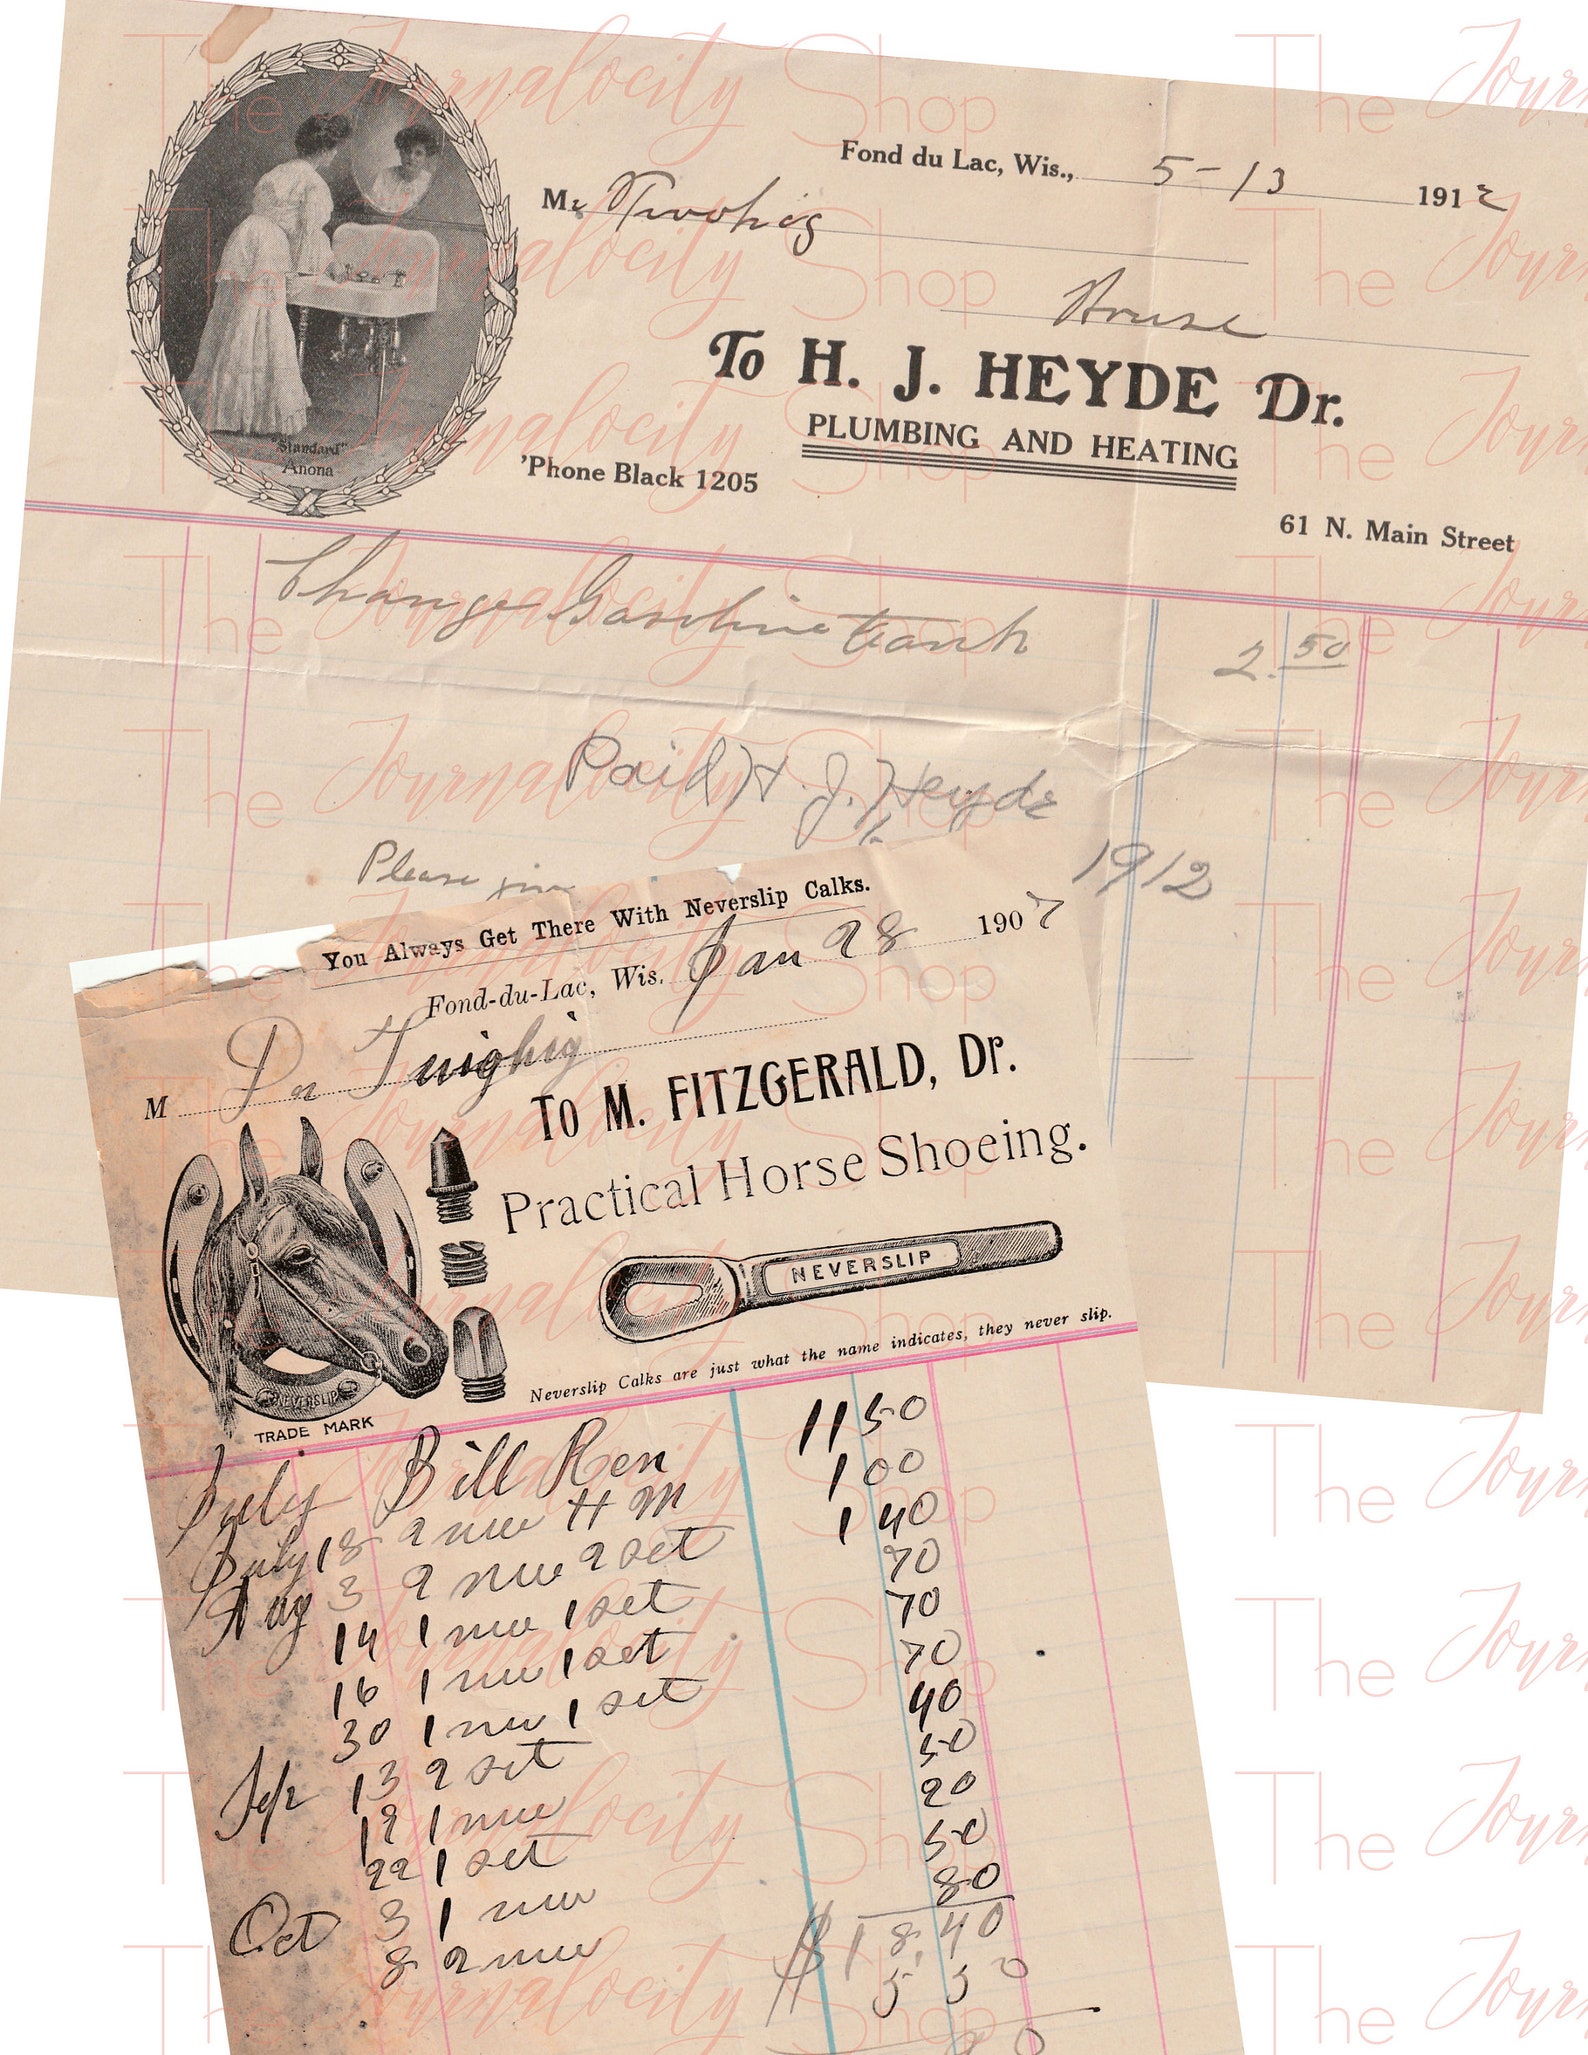 Fond du Lac, Wis., 5-13 1912
Mr Twohig
House
To H. J. HEYDE Dr.
PLUMBING AND HEATING
'Phone Black 1205
61 N. Main Street
"Standard"
Anona
Change Gasoline tank 2.50
Paid H. J. Heyde
1912
Please
You Always Get There With Neverslip Calks.
Fond-du-Lac, Wis. Jan 28 1907
M Dr Twighig
To M. FITZGERALD, Dr.
Practical Horse Shoeing.
NEVERSLIP
NEVERSLIP
TRADE MARK
Neverslip Calks are just what the name indicates, they never slip.
July Bill Ren 11 50
July 18 2 new H M 1 00
Aug 3 2 new 2 set 1 40
14 1 new 1 set 70
16 1 new 1 set 70
30 1 new 1 set 70
Sep 13 2 set 40
19 1 new 50
22 1 set 20
Oct 3 1 new 50
8 2 new 80
$18,40
5 50
The Journalocity Shop